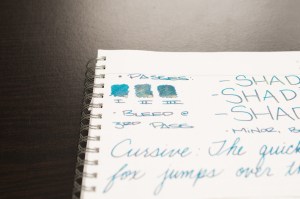 • PASSES:
I II III
• BLEED @
3RD PASS
- SHAD
- SHAD
- SHAD
• MINOR, B
Cursive: The quick
fox jumps over t